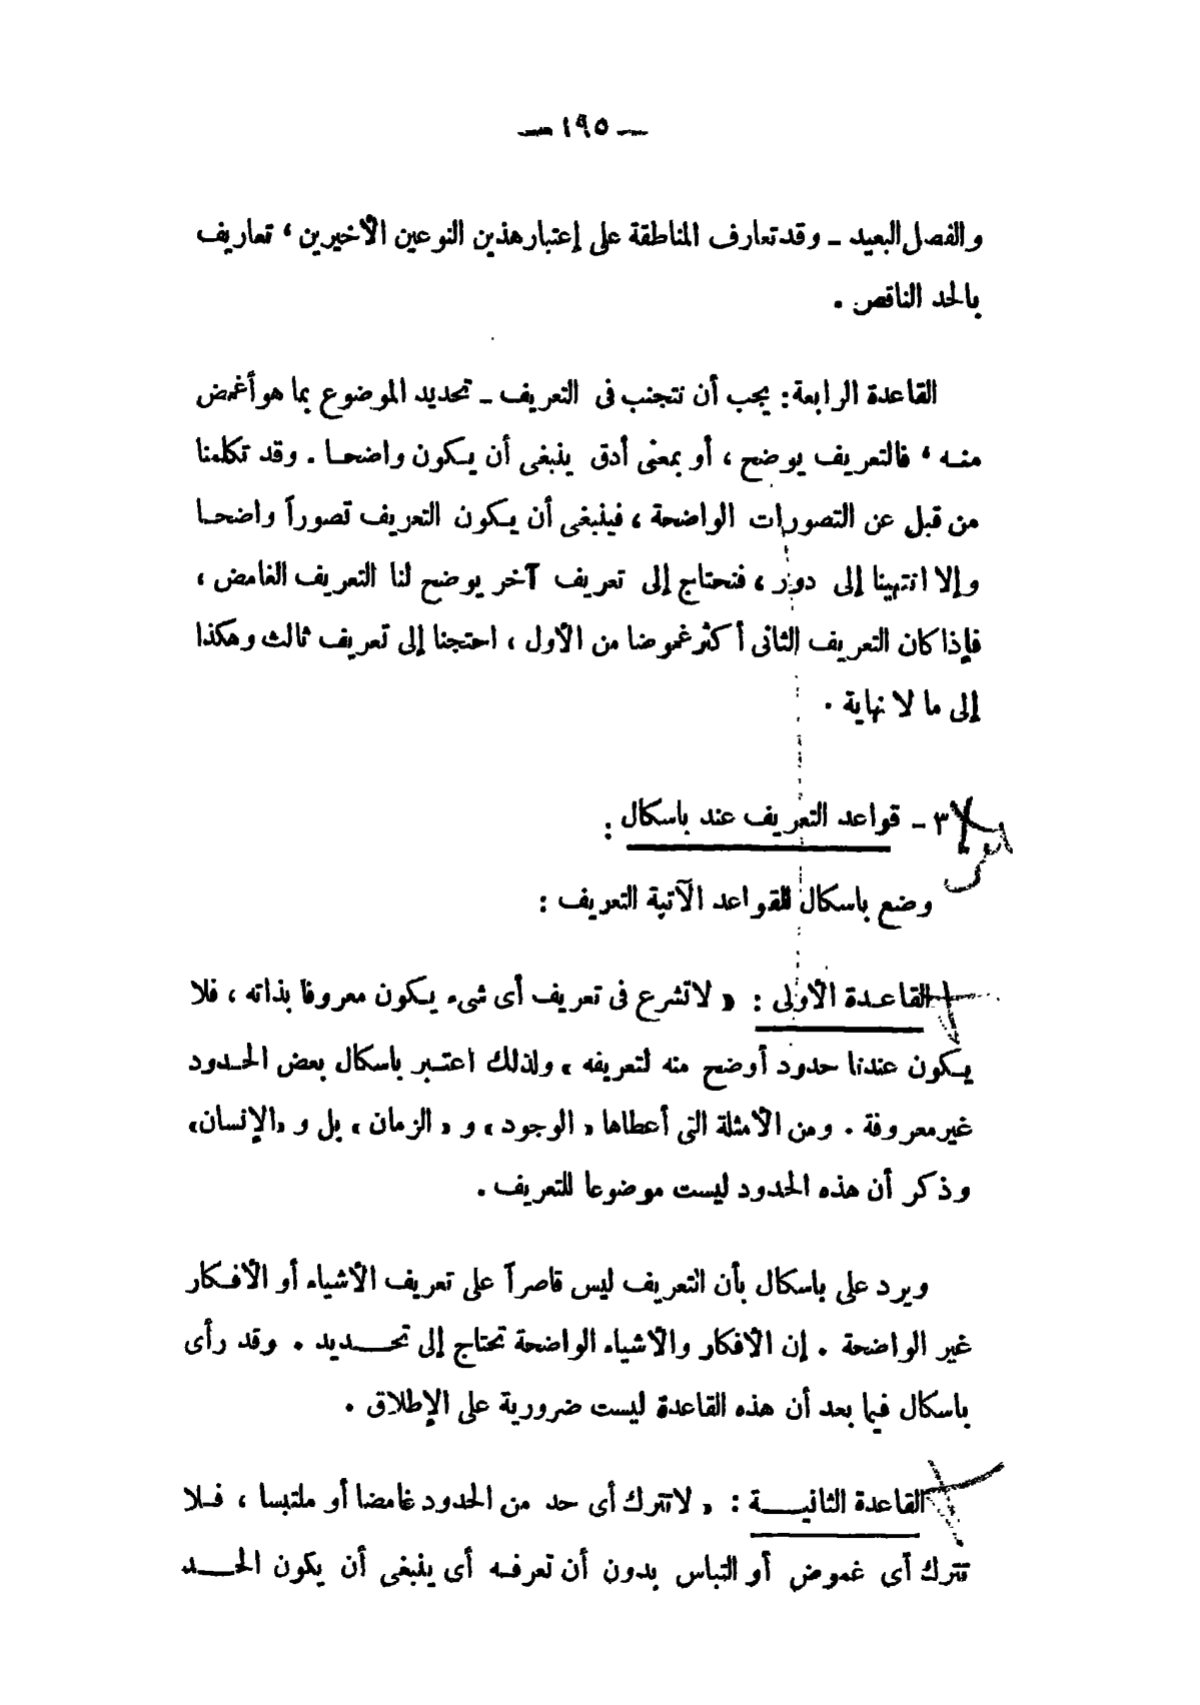 — ١٩٥ —
والفصل البعيد ـ وقد تعارف المناطقة على إعتبار هذين النوعين الأخيرين ، تعاريف
بالحد الناقص .
القاعدة الرابعة : يجب أن نتجنب فى التعريف ـ تحديد الموضوع بما هو أغمض
منه ، فالتعريف يوضح ، أو بمعنى أدق ينبغى أن يكون واضحا . وقد تكلمنا
من قبل عن التصورات الواضحة ، فينبغى أن يكون التعريف تصوراً واضحا
وإلا انتهينا إلى دور ، فنحتاج إلى تعريف آخر يوضح لنا التعريف الغامض ،
فإذا كان التعريف الثانى أكثر غموضا من الأول ، احتجنا إلى تعريف ثالث وهكذا
إلى ما لا نهاية .
٣ ـ قواعد التعريف عند باسكال :
وضع باسكال للقواعد الآتية التعريف :
القاعدة الأولى : « لا تشرع فى تعريف أى شىء يكون معروفا بذاته ، فلا
يكون عندنا حدود أوضح منه لتعريفه ، ولذلك اعتبر باسكال بعض الحدود
غير معروفة . ومن الأمثلة التى أعطاها « الوجود » و « الزمان » بل و « الإنسان »
وذكر أن هذه الحدود ليست موضوعا للتعريف .
ويرد على باسكال بأن التعريف ليس قاصراً على تعريف الأشياء أو الأفكار
غير الواضحة . إن الأفكار والأشياء الواضحة تحتاج إلى تحديد . وقد رأى
باسكال فيما بعد أن هذه القاعدة ليست ضرورية على الإطلاق .
القاعدة الثانية : « لا تترك أى حد من الحدود غامضا أو ملتبسا ، فلا
تترك أى غموض أو التباس بدون أن تعرفه أى ينبغى أن يكون الحد